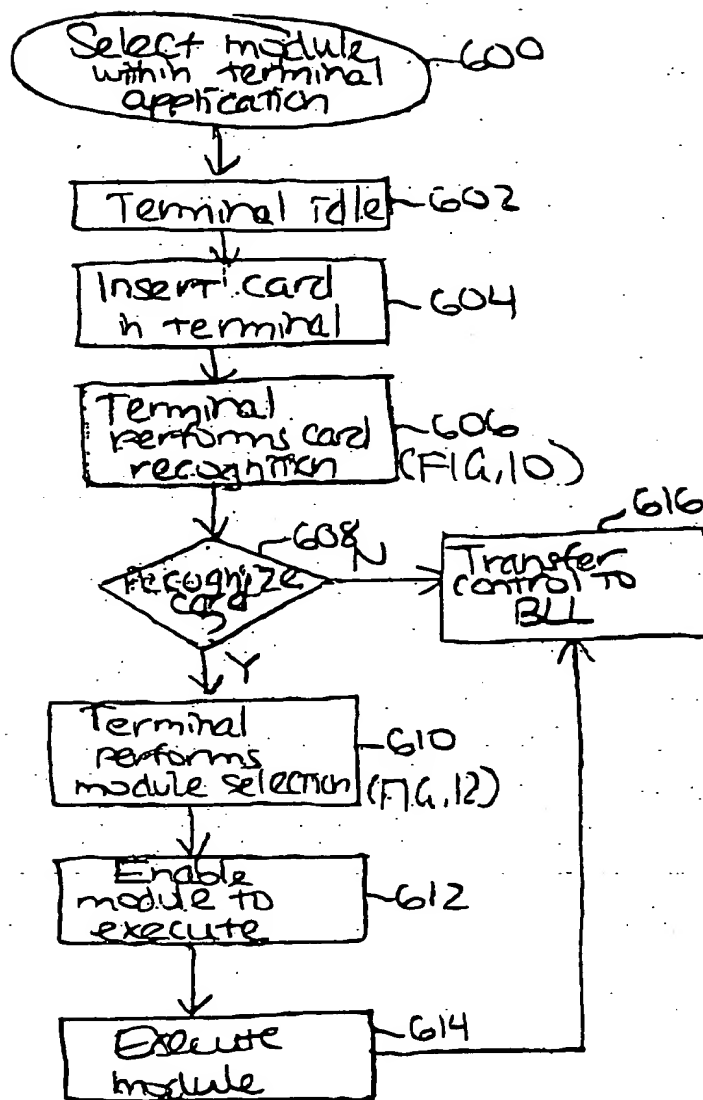 Select module
within terminal
application
600
Terminal idle
602
Insert card
in terminal
604
Terminal
performs card
recognition
606
(FIG. 10)
608
Recognize
card
?
N
616
Transfer
control to
BLL
Y
Terminal
performs
module selection
610
(FIG. 12)
Enable
module to
execute
612
Execute
module
614